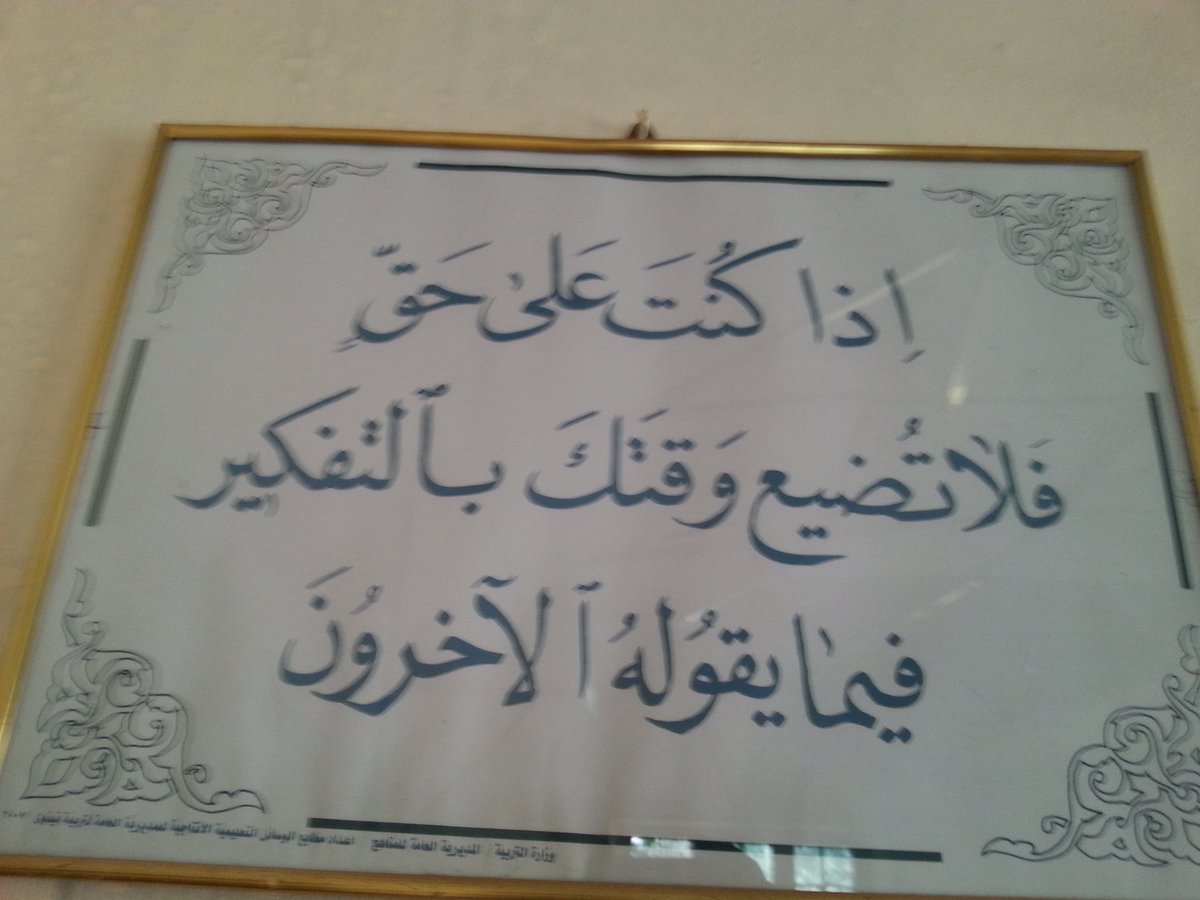 إذا كُنتَ عَلىٰ حَقٍّ
فَلَا تُضيع وَقتَكَ بٱلتفكير
فيمٰا يقُولهُ ٱلآخرُونَ
وزارة التربية / المديرية العامة للمناهج / اعداد مطابع الوسائل التعليمية الانتاجية للمديرية العامة لتربية نينوى